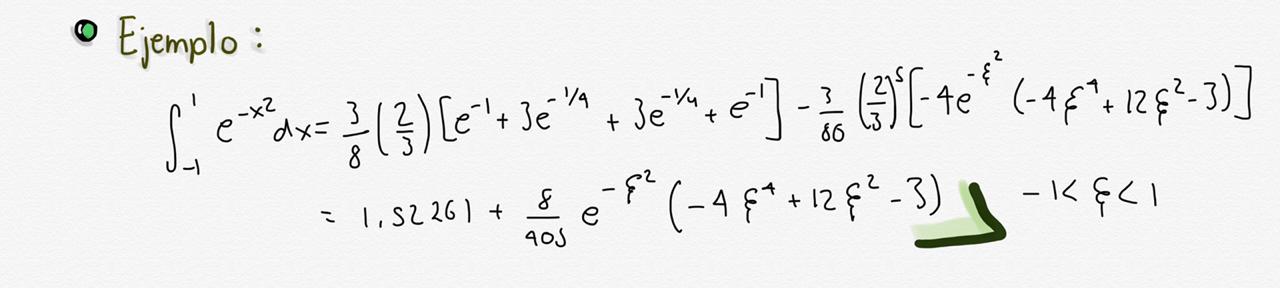 Ejemplo :
∫₋₁¹ e^(-x²) dx = 3/8 (2/3) [e⁻¹ + 3e^(-1/4) + 3e^(-1/4) + e⁻¹] - 3/80 (2/3)⁵ [-4e^(-ξ²) (-4ξ⁴ + 12ξ² - 3)]
= 1,52261 + 8/405 e^(-ξ²) (-4ξ⁴ + 12ξ² - 3) -1 < ξ < 1